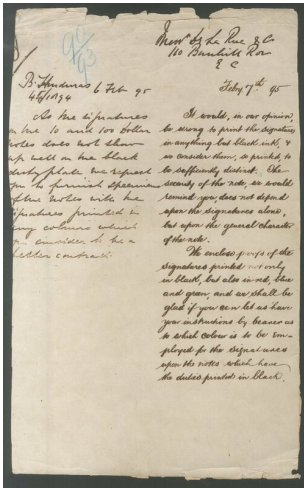 90
93
B. Honduras 6 Feb 95
As the signatures
on the 10 and 100 dollar
notes does not show
up well on the black
duty plate we request
you to furnish specimen
of the notes with the
signature printed in
any colours which
you consider to be a
better contrast.
Messrs De La Rue & Co
110 Bunhill Row
E C
Feby 7th 95
It would, in our opinion,
be wrong to print the signatures
in anything but black ink, &
we consider them, so printed, to
be sufficiently distinct. The
security of the note, we would
remind you does not depend
upon the signatures alone,
but upon the general character
of the note.
We enclose proofs of the
signatures printed not only
in black, but also in red, blue
and green, and we shall be
glad if you can let us have
your instructions by bearer as
to which colour is to be em-
ployed for the signatures
upon the notes which have
the duties printed in black.